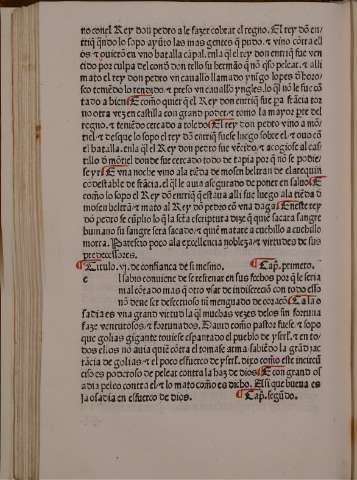 no con el Rey don pedro a le fazer cobrar el regno. El rey dõ en/
triq̃ quãdo lo sopo ayũto las mas gentes q̃ pudo. ⁊ vino cõtra ell
os ⁊ ouierõ en vno batalla cãpal. en la q̃l el rey don enrriq̃ fue ven
cido por culpa del conde don tello su hermão q̃ nõ q̃so pelear. ⁊ alli
mato el rey don pedro vn cauallo llamado yñigo lopes d̃ horo/
sco teniẽdo lo rendido ⁊ preso vn cauallo yngles. lo q̃l nõ le fue cõ
tado a bien ¶ E como quier q̃ el Rey don enrriq̃ fue pa frãcia tor
no otra vez en castilla con grand poder ⁊ tomo la mayor pte del
regno. ⁊ teniẽdo cercado a toledo ¶ El rey dõ pedro vino a mõ/
tiel ⁊ desque lo sopo el rey dõ enrriq̃ fuese luego sobre el ⁊ ouo cõ
el batalla. en la q̃l el Rey don pedro fue vẽcido. ⁊ acogiose al cas/
tillo d̃ mõtiel donde fue cercado todo de tapia por q̃ nõ se podie/
se yr ¶ E vna noche vino a la tiẽda de mosen beltran de clarequin
cõdestable de frãcia. el q̃l le auia asegurado de poner en saluo ¶ E
como lo sopo el Rey dõ enrriq̃ q̃ estaua alli fue luego a la tiẽda d̃
mosen beltrã ⁊ mato al Rey dõ pedro cõ vna daga ¶ En este rey
dõ pedro se cũplio lo q̃ la sctã escriptura dize q̃ quiẽ sacara sangre
humano su sangre sera sacada ⁊ quiẽ matare a cuchillo a cuchillo
morra. Paresciẽo poco a la excellencia nobleza ⁊ virtudes de sus
predecessores.
¶ Titulo. vj. de confiança de si mesmo. ¶ Cap. primero.
e l sabio conuiene de se refrenar en sus fechos por q̃ le seria
mal cõtado mas q̃ otro vsar de indiscreciõ con todo esso
nõ deue ser defectuoso ni menguado de coraçõ ¶ Ca la o
sadia es vna grand virtud la q̃l muchas vezes delos sin fortuna
faze venturosos. ⁊ fortunados. Dauid como pastor fuese ⁊ sopo
que golias gigante touiese espantado el pueblo de ysrl. ⁊ en to/
dos ellos nõ auia quiẽ cõtra el tomase arma sabiẽdo la grãd jac
tãcia de golias ⁊ el poco esfuerço de ysrl. dixo como este incircũ
ciso es poderoso de pelear contra la haz de dios ¶ E con grand os
adia peleo contra el ⁊ lo mato como es dicho. Asi que buena es
la osadia en esfuerço de dios. ¶ Cap. segũdo.